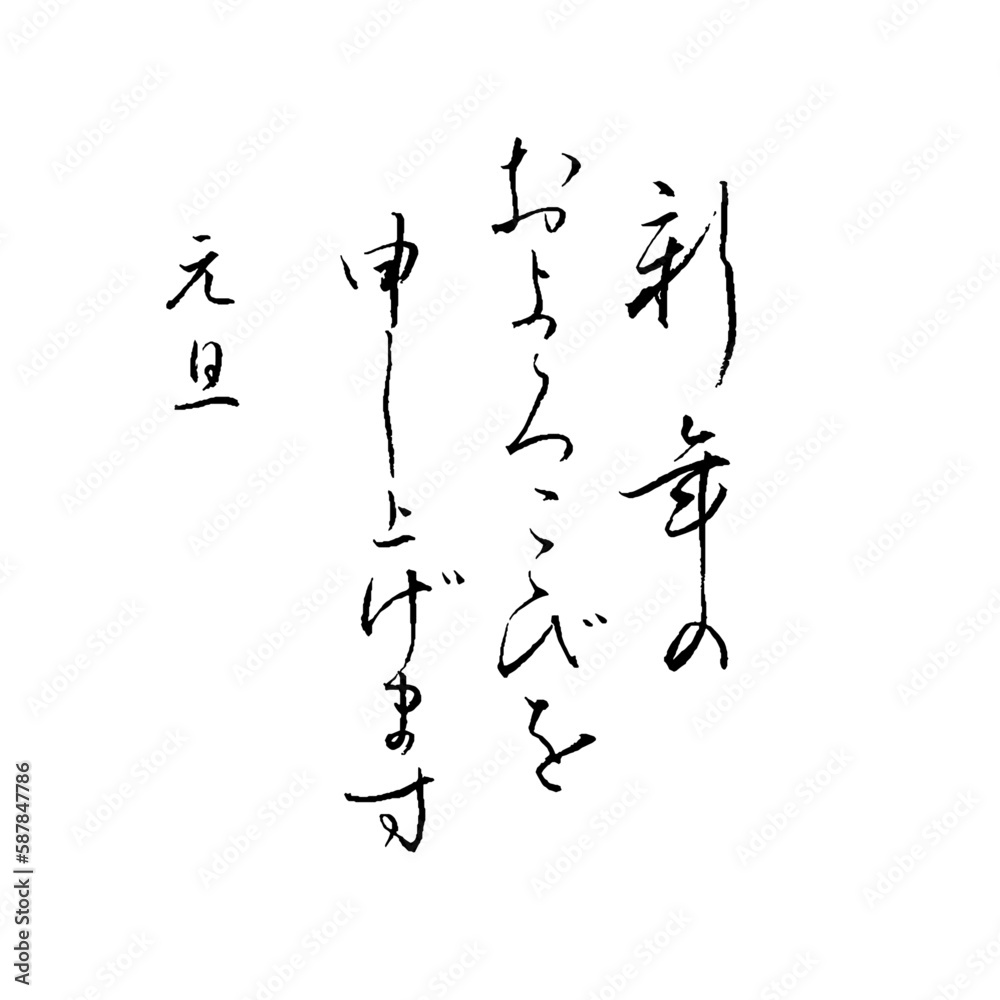 新年の
およろこびを
申し上げます
元旦
Adobe Stock | #587847786
Adobe Stock